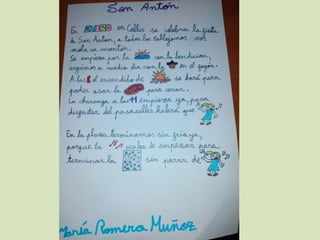 San Antón
En ENERO en Calles se celebra la fiesta
de San Antón, a todos los Callejanos nos
mola un montón.
Se empieza por la con la bendición,
seguimos a medio día con la en el fogón.
A las 8 el encendido de se hará para
poder usar la para cenar.
La charanga a las 11 empieza ya, para
disfrutar del pasacalles habrá que
En la plaza terminamos sin
porque la acaba de empezar para
terminar la sin parar de
María Romero Muñoz